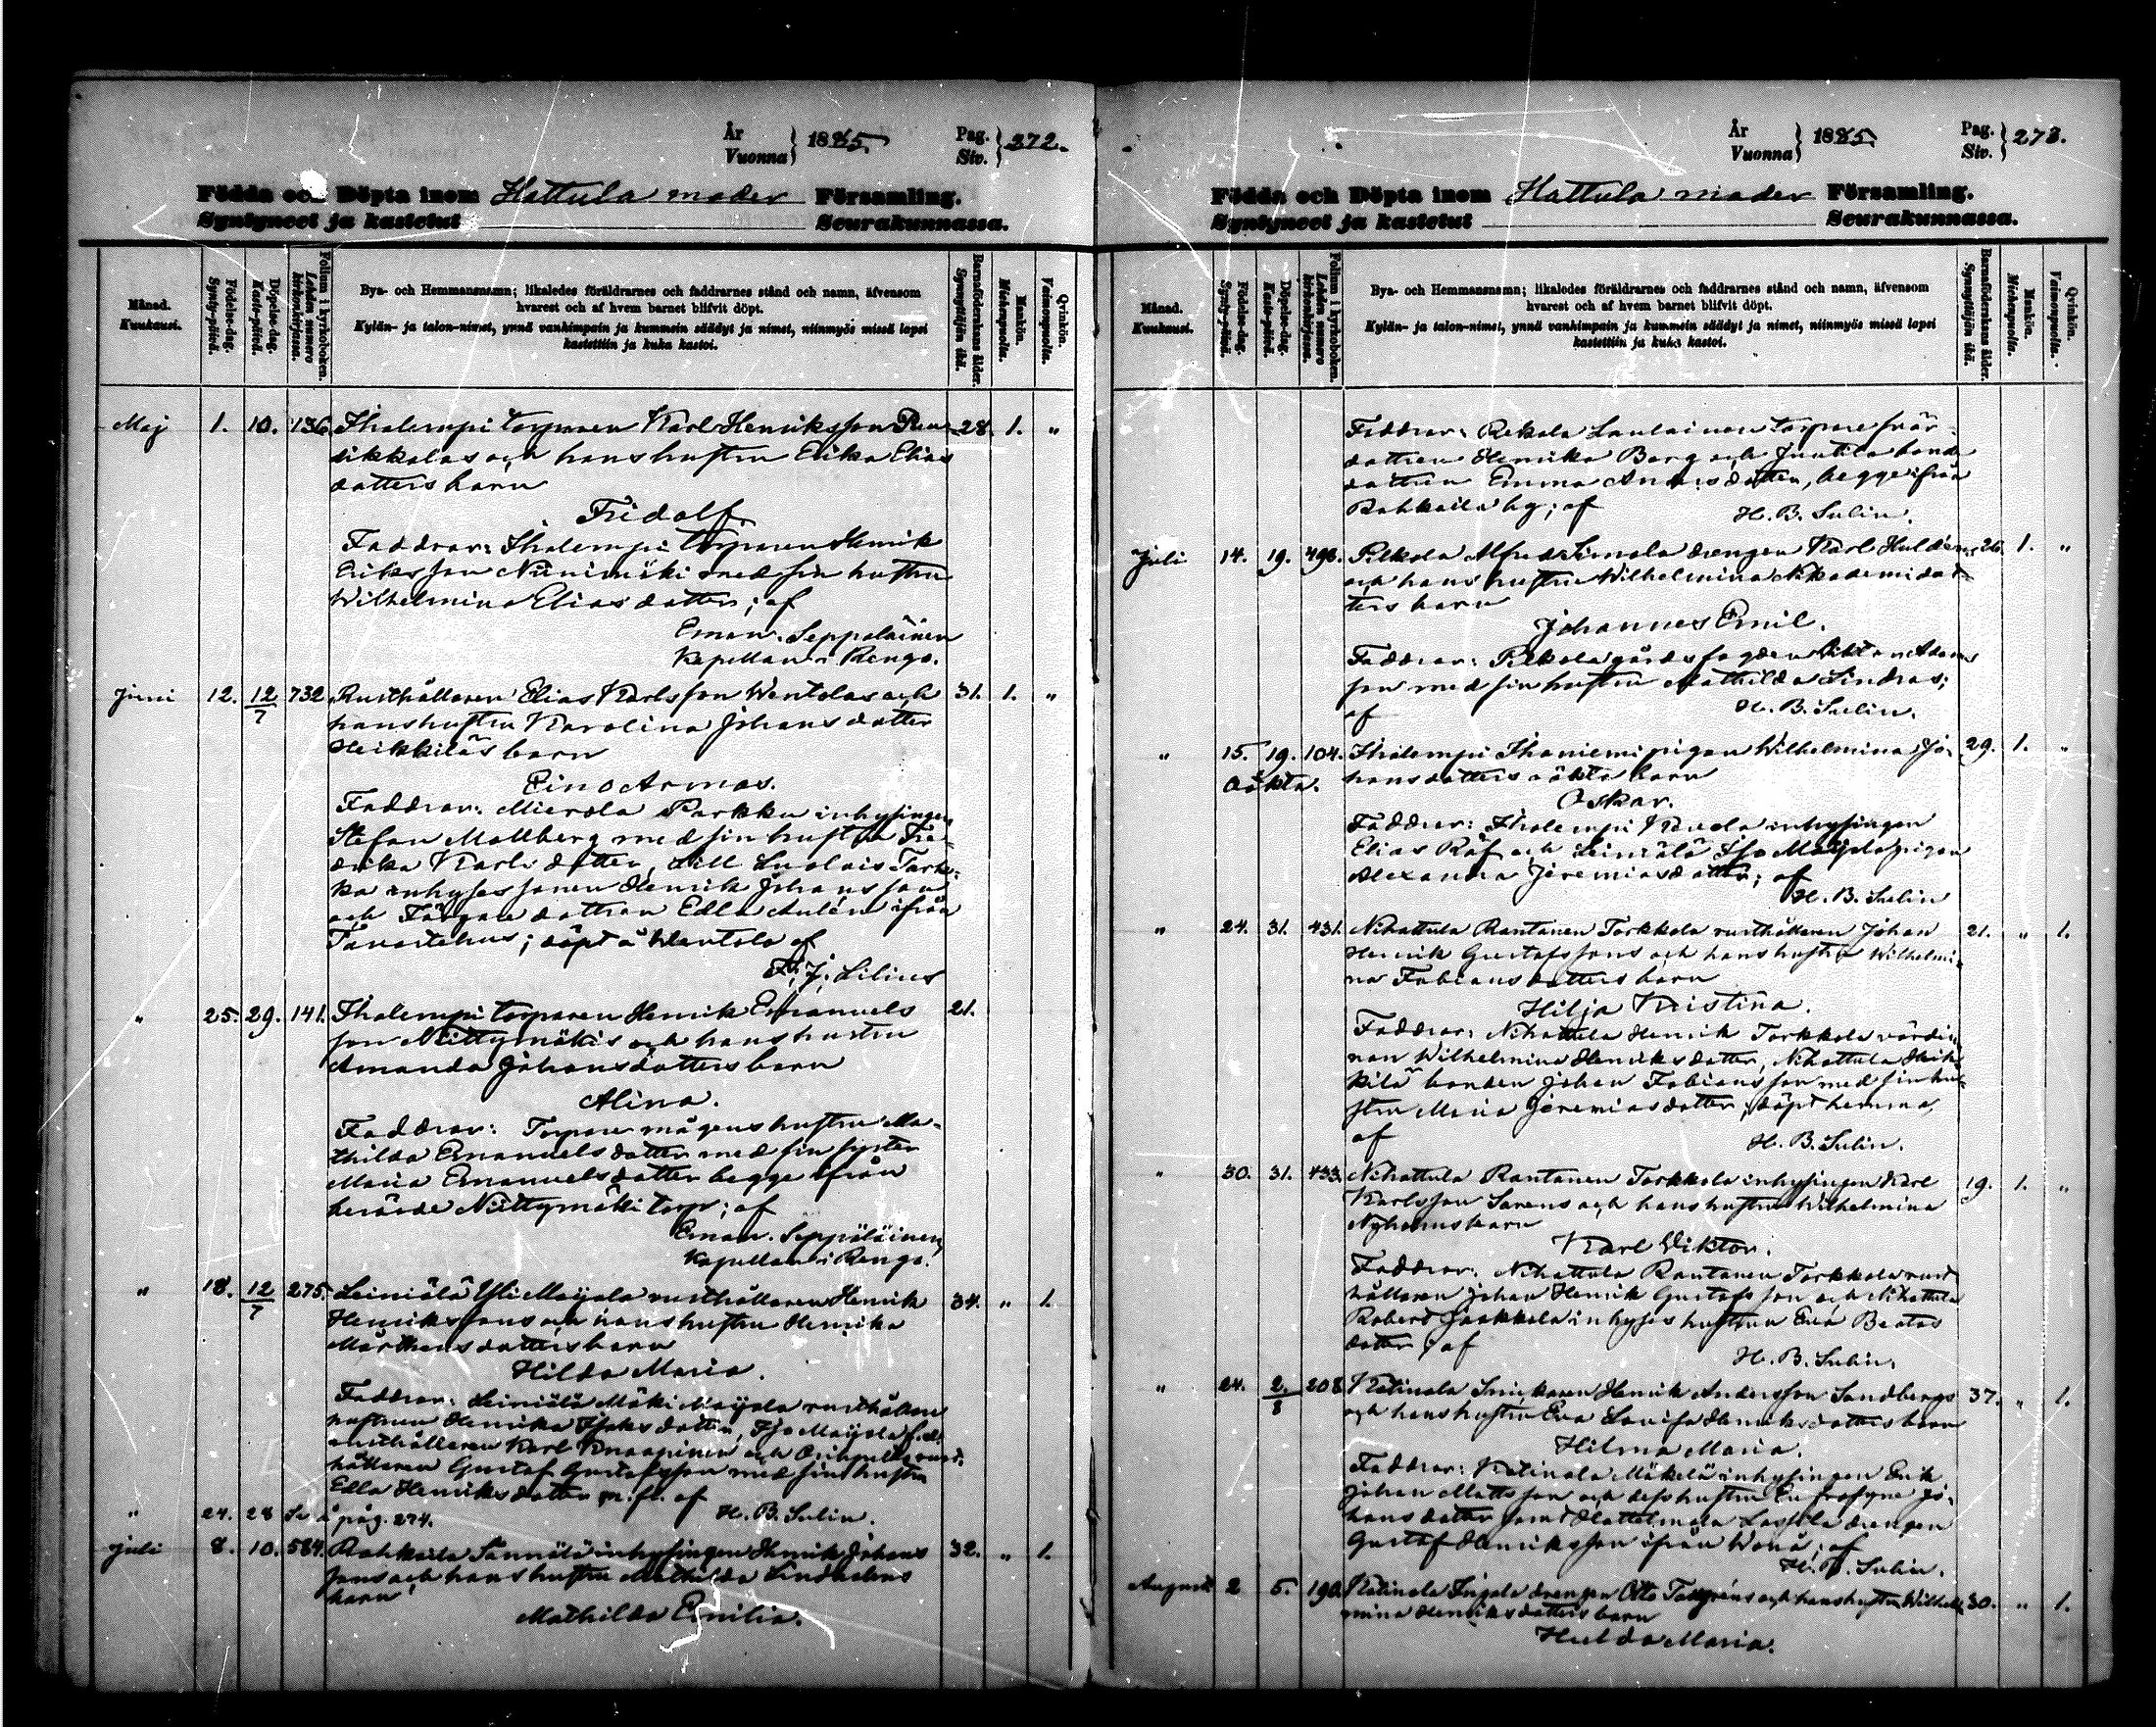 År
Vuonna } 1885. Pag. Siv. } 272.
Födda och Döpta inom Hattula moder Församling.
Syntyneet ja kastetut Seurakunnassa.
Månad. Kuukausi.
Födelse-dag. Synty-päivä.
Döpelse-dag. Kaste-päivä.
Folium i kyrkoboken. Lehden numero kirkonkirjassa.
Bya- och Hemmansnamn; likaledes föräldrarnes och faddrarnes stånd och namn, äfvensom
hvarest och af hvem barnet blifvit döpt.
Kylän- ja talon-nimet, ynnä vanhimpain ja kummein säädyt ja nimet, niinmyös missä lapsi
kastettiin ja kuka kastoi.
Barnaföderskans ålder. Synnyttäjän ikä.
Mankön. Miehenpuolta.
Qvinkön. Vaimonpuolta.
Maj 1. 10. 136. Ihalempi torparen Karl Henriksson Pen- 28. 1. "
sikkalas och hans hustru Erika Elias
dotters barn
Fridolf
Faddrar: Ihalempi torparen Henrik
Eriksson Niinimäki med sin hustru
Wilhelmina Eliasdotter; af
Eman. Seppäläinen
Kapellan i Rengo.
Juni 12. 12/7 732 Rusthållaren Elias Karlsson Wentolas och 31. 1. "
hans hustru Karolina Johansdotter
Heikkiläs barn
Eino Armas.
Faddrar: Mierola Parkku inhysingen
Stefan Mollberg med sin hustru Fre-
drika Karlsdotter, Lill Luolais Tark-
ka inhyses sonen Henrik Johansson
och Färgare dottren Edla Aulén ifrån
Tavastehus; döpt å Wentola af
F. J. Lilius
" 25. 29. 141. Ihalempi torparen Henrik Emanuels 21.
son Niittymäkis och hans hustru
Amanda Johansdotters barn
Alina.
Faddrar: Torpare mågens hustru Ma-
thilda Emanuelsdotter med sin syster
Maria Emanuelsdotter begge ifrån
berörde Niittymäki torp; af
Eman. Seppäläinen,
Kapellan i Rengo.
" 18. 12/7 275. Leiniälä Yli Maijala rusthållaren Henrik 34. " 1.
Henrikssons och hans hustru Henrika
Mårthensdotters barn
Hilda Maria.
Faddrar: Leiniälä Mäki Maijala rusthållare
hustrun Henrika Isaksdotter, Iso Maijala f.d.
rusthållaren Karl Knaapinen och rust-
hållaren Gustaf Gustafsson med sin hustru
Edla Henriksdotter m.fl. af H. B. Sulin.
" 24. 28 Se å pag. 274.
Juli 8. 10. 584. Rahkoila Sännälä inhysingen Henrik Johans 32. " 1.
sons och hans hustru Mathilda Lindholms
barn
Mathilda Emilia.
År
Vuonna } 1885. Pag. Siv. } 273.
Födda och Döpta inom Hattula moder Församling.
Syntyneet ja kastetut Seurakunnassa.
Månad. Kuukausi.
Födelse-dag. Synty-päivä.
Döpelse-dag. Kaste-päivä.
Folium i kyrkoboken. Lehden numero kirkonkirjassa.
Bya- och Hemmansnamn; likaledes föräldrarnes och faddrarnes stånd och namn, äfvensom
hvarest och af hvem barnet blifvit döpt.
Kylän- ja talon-nimet, ynnä vanhimpain ja kummein säädyt ja nimet, niinmyös missä lapsi
kastettiin ja kuka kastoi.
Barnaföderskans ålder. Synnyttäjän ikä.
Mankön. Miehenpuolta.
Qvinkön. Vaimonpuolta.
Faddrar: Rekola torpare
dottren Henrika Borg och Juutila bonde
dottren Emma Andersdotter, begge ifrån
Rahkoila by; af H. B. Sulin.
Juli 14. 19. 498. Pelkola Alfred Simola drengen Karl Huldéns 26. 1. "
och hans hustru Wilhelmina Nikodemidot-
ters barn
Johannes Emil.
Faddrar: Pelkola gårdsfogden Viktor Adams
son med sin hustru Mathilda Lindros;
af H. B. Sulin.
" 15. 19. 104. Ihalempi Ihaniemi pigan Wilhelmina Jo- 29. 1. "
Oäkta. hansdotters oäkta barn
Oskar.
Faddrar: Ihalempi Knuda inhysingen
Elias Räf och Leiniälä Iso Maijala pigan
Alexandra Jeremiasdotter; af
H. B. Sulin
" 24. 31. 431. Nihattula Rantanen Torkkola rusthållaren Johan 21. " 1.
Henrik Gustafssons och hans hustru Wilhelmi-
na Fabiansdotters barn
Hilja Kristina.
Faddrar: Nihattula Henrik Torkkola värdin-
nan Wilhelmina Henriksdotter, Nihattula Heik-
kilä bonden Johan Fabiansson med sin hu-
stru Maria Jeremiasdotter; döpt hemma,
af H. B. Sulin.
" 30. 31. 433. Nihattula Rantanen Torkkola inhysingen Karl 19. 1. "
Karlsson Sarens och hans hustru Wilhelmina
Nyholms barn
Karl Viktor.
Faddrar: Nihattula Rantanen Torkkola rust
hållaren Johan Henrik Gustafsson och Nihattula
Robert Jaakkola inhyses hustrun Eva Beatas
dotter; af
H. B. Sulin.
" 24. 2./8 208 Katinala Snickaren Henrik Andersson Sandbergs 37. " 1.
och hans hustru Eva Lovisa Henriksdotters barn
Hilma Maria.
Faddrar: Katinala Mäkelä inhysingen Erik
Johan Mattsson och dess hustru Eufrosyne Jo-
hansdotter samt Hattelmala Lassila drengen
Gustaf Henriksson ifrån Wånå; af
H. B. Sulin.
August 2 5. 190. Katinala Ingala drengen Otto Tallgréns och hans hustru Wilhel- 30. " 1.
mina Henriksdotters barn
Hulda Maria.